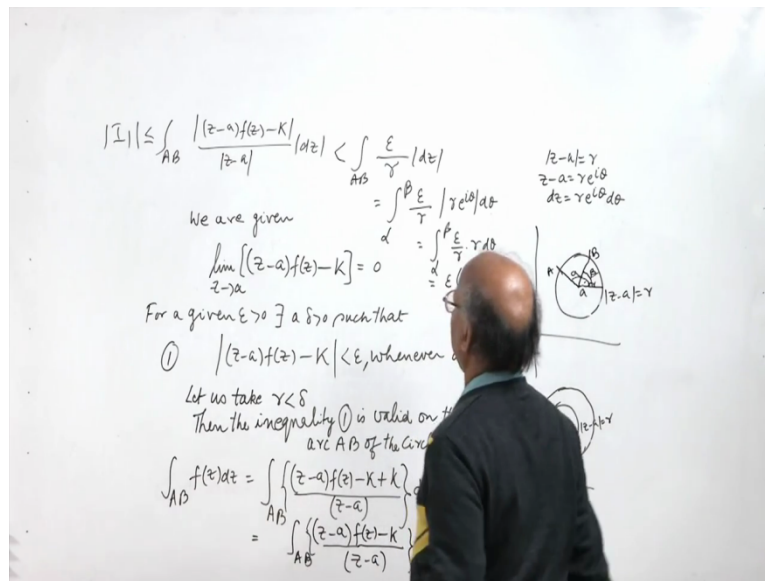 |I₁| ≤ ∫_AB |(z-a)f(z)-K| / |z-a| |dz| < ∫_AB ε/r |dz|
= ∫_α^β ε/r |re^{iθ}| dθ
= ∫_α^β ε/r · r dθ
= ε(
|z-a|=r
z-a=re^{iθ}
dz=re^{iθ}dθ
We are given
lim_{z→a} [(z-a)f(z)-K] = 0
For a given ε>0 ∃ a δ>0 such that
① |(z-a)f(z)-K| < ε, whenever
Let us take r<δ
Then the inequality ① is valid on
arc AB of the
∫_AB f(z)dz = ∫_AB {(z-a)f(z)-K+K / (z-a)}
= ∫_AB {(z-a)f(z)-K / (z-a)}
A
B
α
β
a
|z-a|=r
|z-a|=r